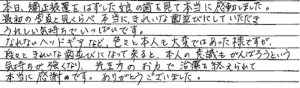 本日、矯正装置をはずした娘の歯を見て本当に感動しました。
最初の写真と見くらべ本当にきれいな歯並びにしていただき
うれしい気持ちでいっぱいです。
なれないヘッドギアなど、色々と本人も大変ではあった様ですが、
段々ときれいな歯並びになって来ると、本人の意識もがんばろうという
気持ちが強くなり、先生方のお力で治療を終えられて
本当に感謝です。ありがとうございました。